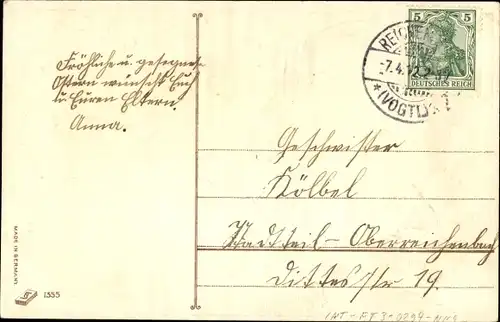 Fröhliche u. gesegnete
Ostern wünscht Euch
u. Euren Eltern
Anna.
5 5
DEUTSCHES REICH
-7.4.12.2-
(VOGTL.)
Geschwister
Kölbel
Stadtteil-Oberreichenbach
Dittesstr 19.
MADE IN GERMANY
1355